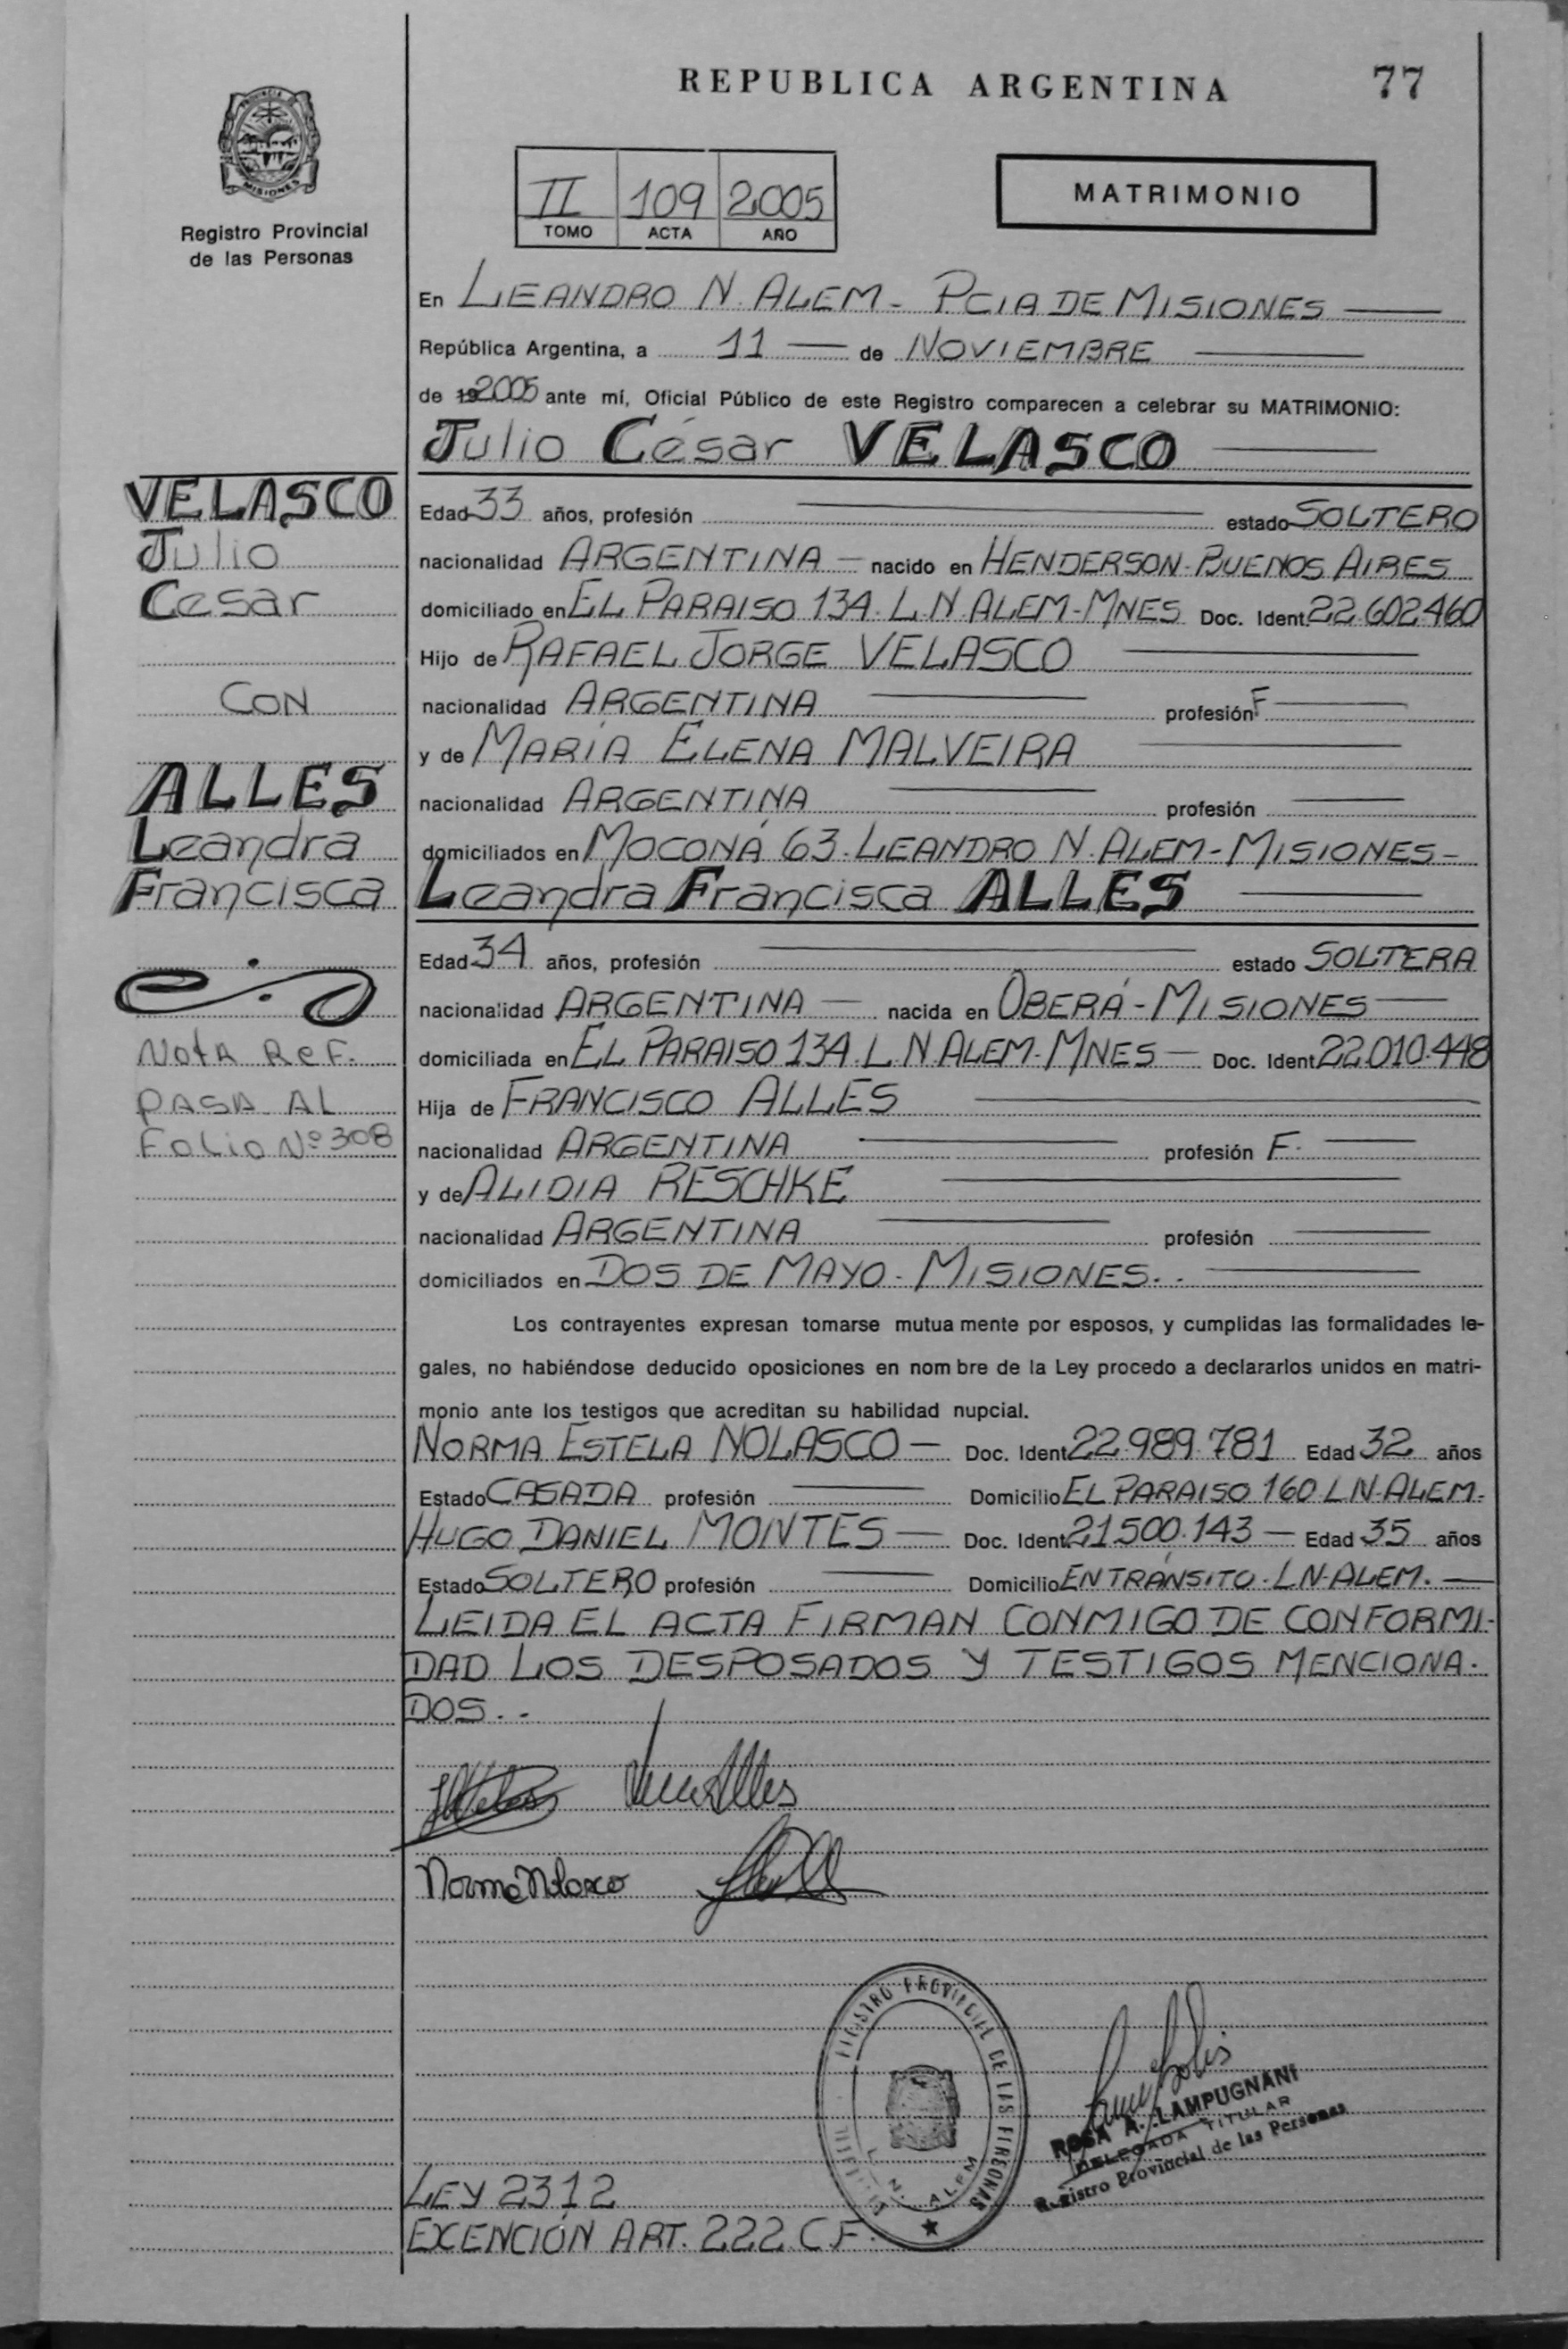 REPUBLICA ARGENTINA 77
PROVINCIA
MISIONES
Registro Provincial
de las Personas
II 109 2005
TOMO ACTA AÑO
MATRIMONIO
En LEANDRO N. ALEM - PCIA DE MISIONES
República Argentina, a 11 de NOVIEMBRE
de 19 2005 ante mí, Oficial Público de este Registro comparecen a celebrar su MATRIMONIO:
Julio César VELASCO
Edad 33 años, profesión estado SOLTERO
nacionalidad ARGENTINA - nacido en HENDERSON - BUENOS AIRES
domiciliado en EL PARAISO 134. L.N. ALEM - MNES Doc. Ident. 22.602.460
Hijo de RAFAEL JORGE VELASCO
nacionalidad ARGENTINA profesión F
y de MARÍA ELENA MALVEIRA
nacionalidad ARGENTINA profesión
domiciliados en MOCONÁ 63. LEANDRO N. ALEM - MISIONES -
Leandra Francisca ALLES
Edad 34 años, profesión estado SOLTERA
nacionalidad ARGENTINA - nacida en OBERÁ - MISIONES
domiciliada en EL PARAISO 134. L.N. ALEM - MNES - Doc. Ident. 22.010.448
Hija de FRANCISCO ALLES
nacionalidad ARGENTINA profesión F.
y de ALIDIA RESCHKE
nacionalidad ARGENTINA profesión
domiciliados en DOS DE MAYO - MISIONES. -
Los contrayentes expresan tomarse mutua mente por esposos, y cumplidas las formalidades le-
gales, no habiéndose deducido oposiciones en nom bre de la Ley procedo a declararlos unidos en matri-
monio ante los testigos que acreditan su habilidad nupcial.
NORMA ESTELA NOLASCO - Doc. Ident. 22.989.781 Edad 32 años
Estado CASADA profesión Domicilio EL PARAISO 160 L N. ALEM.
HUGO DANIEL MONTES - Doc. Ident. 21.500.143 - Edad 35 años
Estado SOLTERO profesión Domicilio EN TRÁNSITO - L N. ALEM. -
LEIDA EL ACTA FIRMAN CONMIGO DE CONFORMI-
DAD LOS DESPOSADOS Y TESTIGOS MENCIONA-
DOS. -
Norma Nolasco
REGISTRO PROVINCIAL DE LAS PERSONAS
L. N. ALEM
ROSA A. LAMPUGNANI
DELEGADA TITULAR
Registro Provincial de las Personas
LEY 2312
EXENCIÓN ART. 222 C.F.
VELASCO
Julio
César
CON
ALLES
Leandra
Francisca
NOTA REF.
PASA AL
FOLIO Nº 308